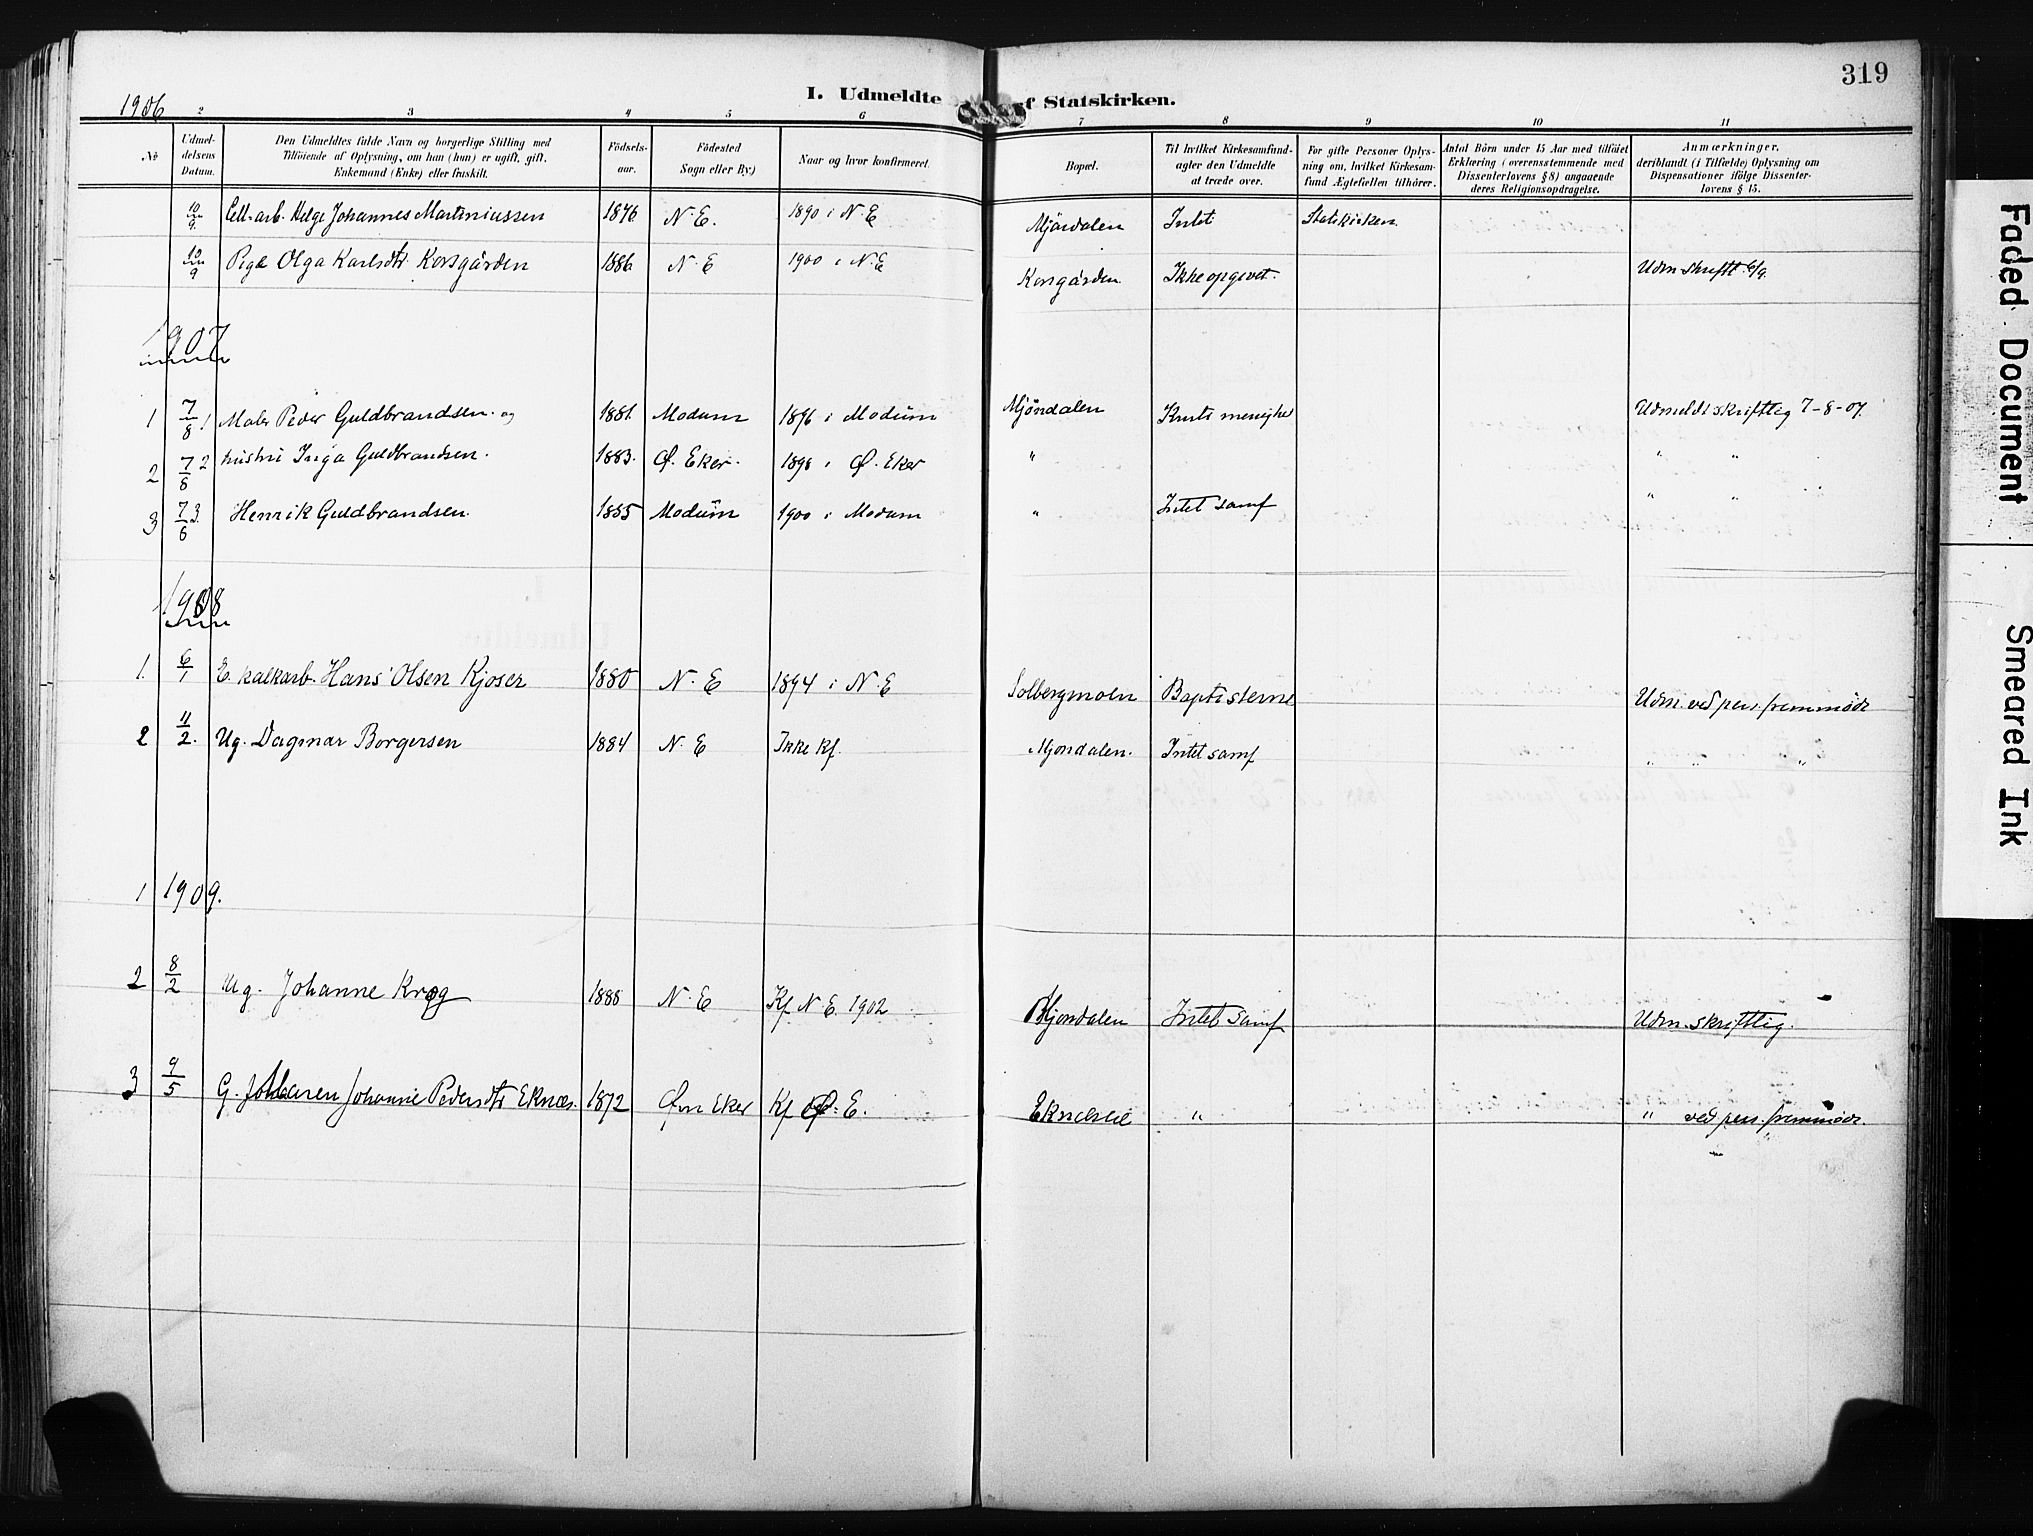 319
1906
I. Udmeldte af Statskirken.
2 3 4 5 6 7 8 9 10 11
No
Udmeldelsens Datum.
Den Udmeldtes fulde Navn og borgerlige Stilling med
Tilföiende af Oplysning, om han (hun) er ugift, gift,
Enkemand (Enke) eller fraskilt.
Födselsaar.
Födested
Sogn eller By.)
Naar og hvor konfirmeret.
Bopæl.
Til hvilket Kirkesamfund
agter den Udmeldte
at træde over.
For gifte Personer Oplysning om, hvilket Kirkesamfund Ægtefællen tilhörer.
Antal Börn under 15 Aar med tilföiet
Erklæring (overensstemmende med
Dissenterlovens § 8) angaaende
deres Religionsopdragelse.
Anmærkninger,
deriblandt (i Tilfælde) Oplysning om
Dispensationer ifölge Dissenterlovens § 15.
10/9 Cell. arb. Helge Johannes Martiniussen 1876 N. E. 1890 i N. E Mjöndalen Intet Statskirken
10/9 Pige Olga Karlsdtr. Korsgården 1886 N. E 1900 i N. E Korsgården. Ikke opgivet. Udm skriftl. 6/9.
1907
1 7/8 1 Maler Peder Guldbrandsen. og 1881. Modum 1896 i Modum Mjöndalen menighed Udmeldt skriftlig 7-8-07.
2 7/8 2 hustru Inga Guldbrandsen. 1883. Ø. Eker. 1898 i Ø. Eker " " "
3 7/8 3. Henrik Guldbrandsen. 1885 Modum 1900 i Modum " Intet samf " "
1908
1. 6/1 E. kalkarb. Hans Olsen Kjøser 1880 N. E 1894 i N. E Solbergmoen Baptisterne Udm. ved pers. fremmöde
2 11/2. Ug. Dagmar Borgersen 1884 N. E Ikke kf. Mjöndalen. Intet samf " " "
1 1909.
2 8/2 Ug. Johanne Krog 1888 N. E Kf N. E. 1902 Mjondalen Intet samf Udm. skriftlig.
3 9/5 G. Maren Johanne Pedersdtr Eknæs. 1872 Øvr Eker Kf Ø. E. Eknæseie " " ved pers. fremmöde.
Faded Document
Smeared Ink